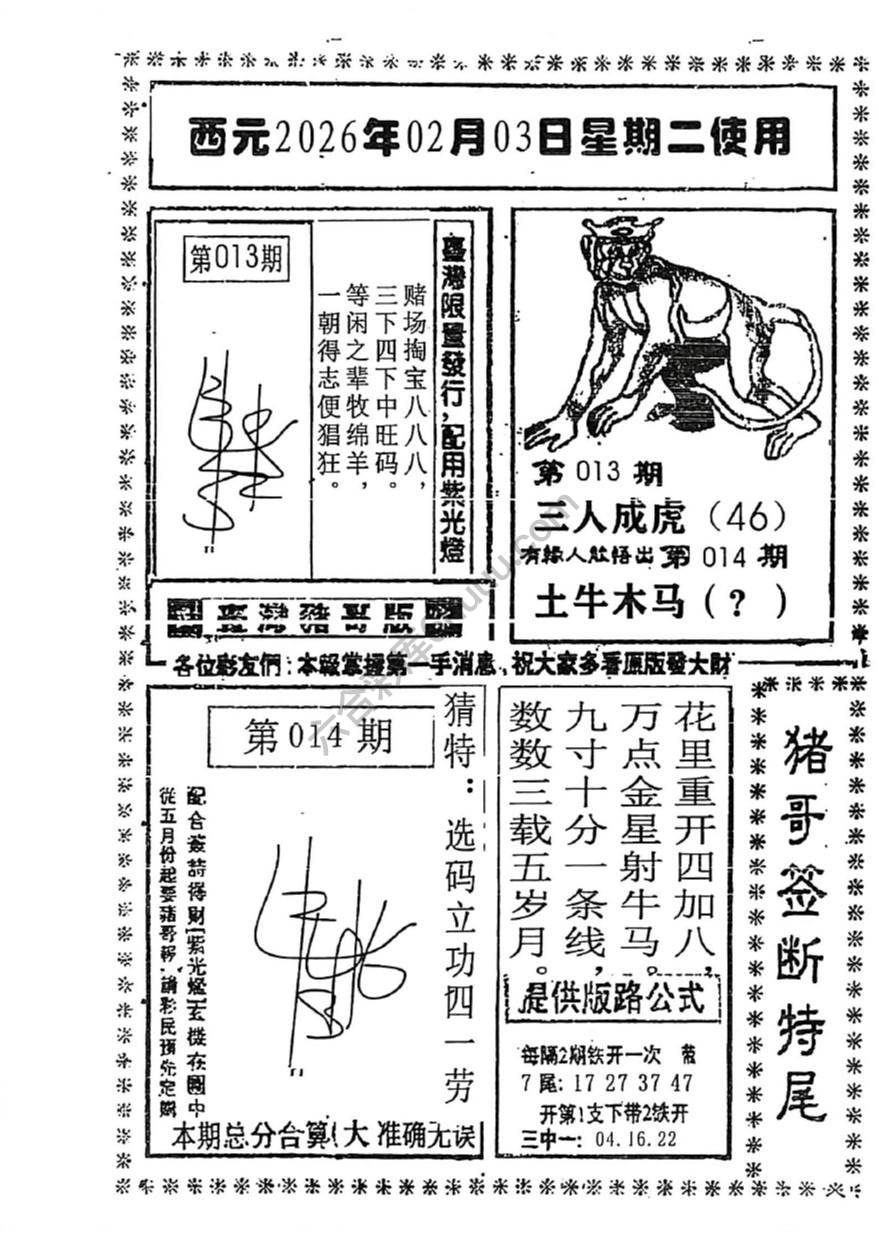 西元2026年02月03日星期二使用
第013期
臺灣限量發行，配用紫光燈
赌场掏宝八八八，
三下四下中旺码。
等闲之辈牧绵羊，
一朝得志便猖狂。
臺灣豬哥版
第 013 期
三人成虎（46）
有緣人能悟出 第 014 期
土牛木马（？）
各位彩友們：本報掌握第一手消息，祝大家多看原版發大財
六合彩库
第 014 期
猜特：选码立功四一劳
配合簽詩得财[紫光燈]玄機在圖中
從五月份起要豬哥報，請彩民預先定購
本期总分合算(大 准确无误
花里重开四加八，
万点金星射牛马。
九寸十分一条线，
数数三载五岁月。
提供版路公式
每隔2期铁开一次
7尾：17 27 37 47
开第1支下带2铁开
三中一：04.16.22
猪哥签断特尾